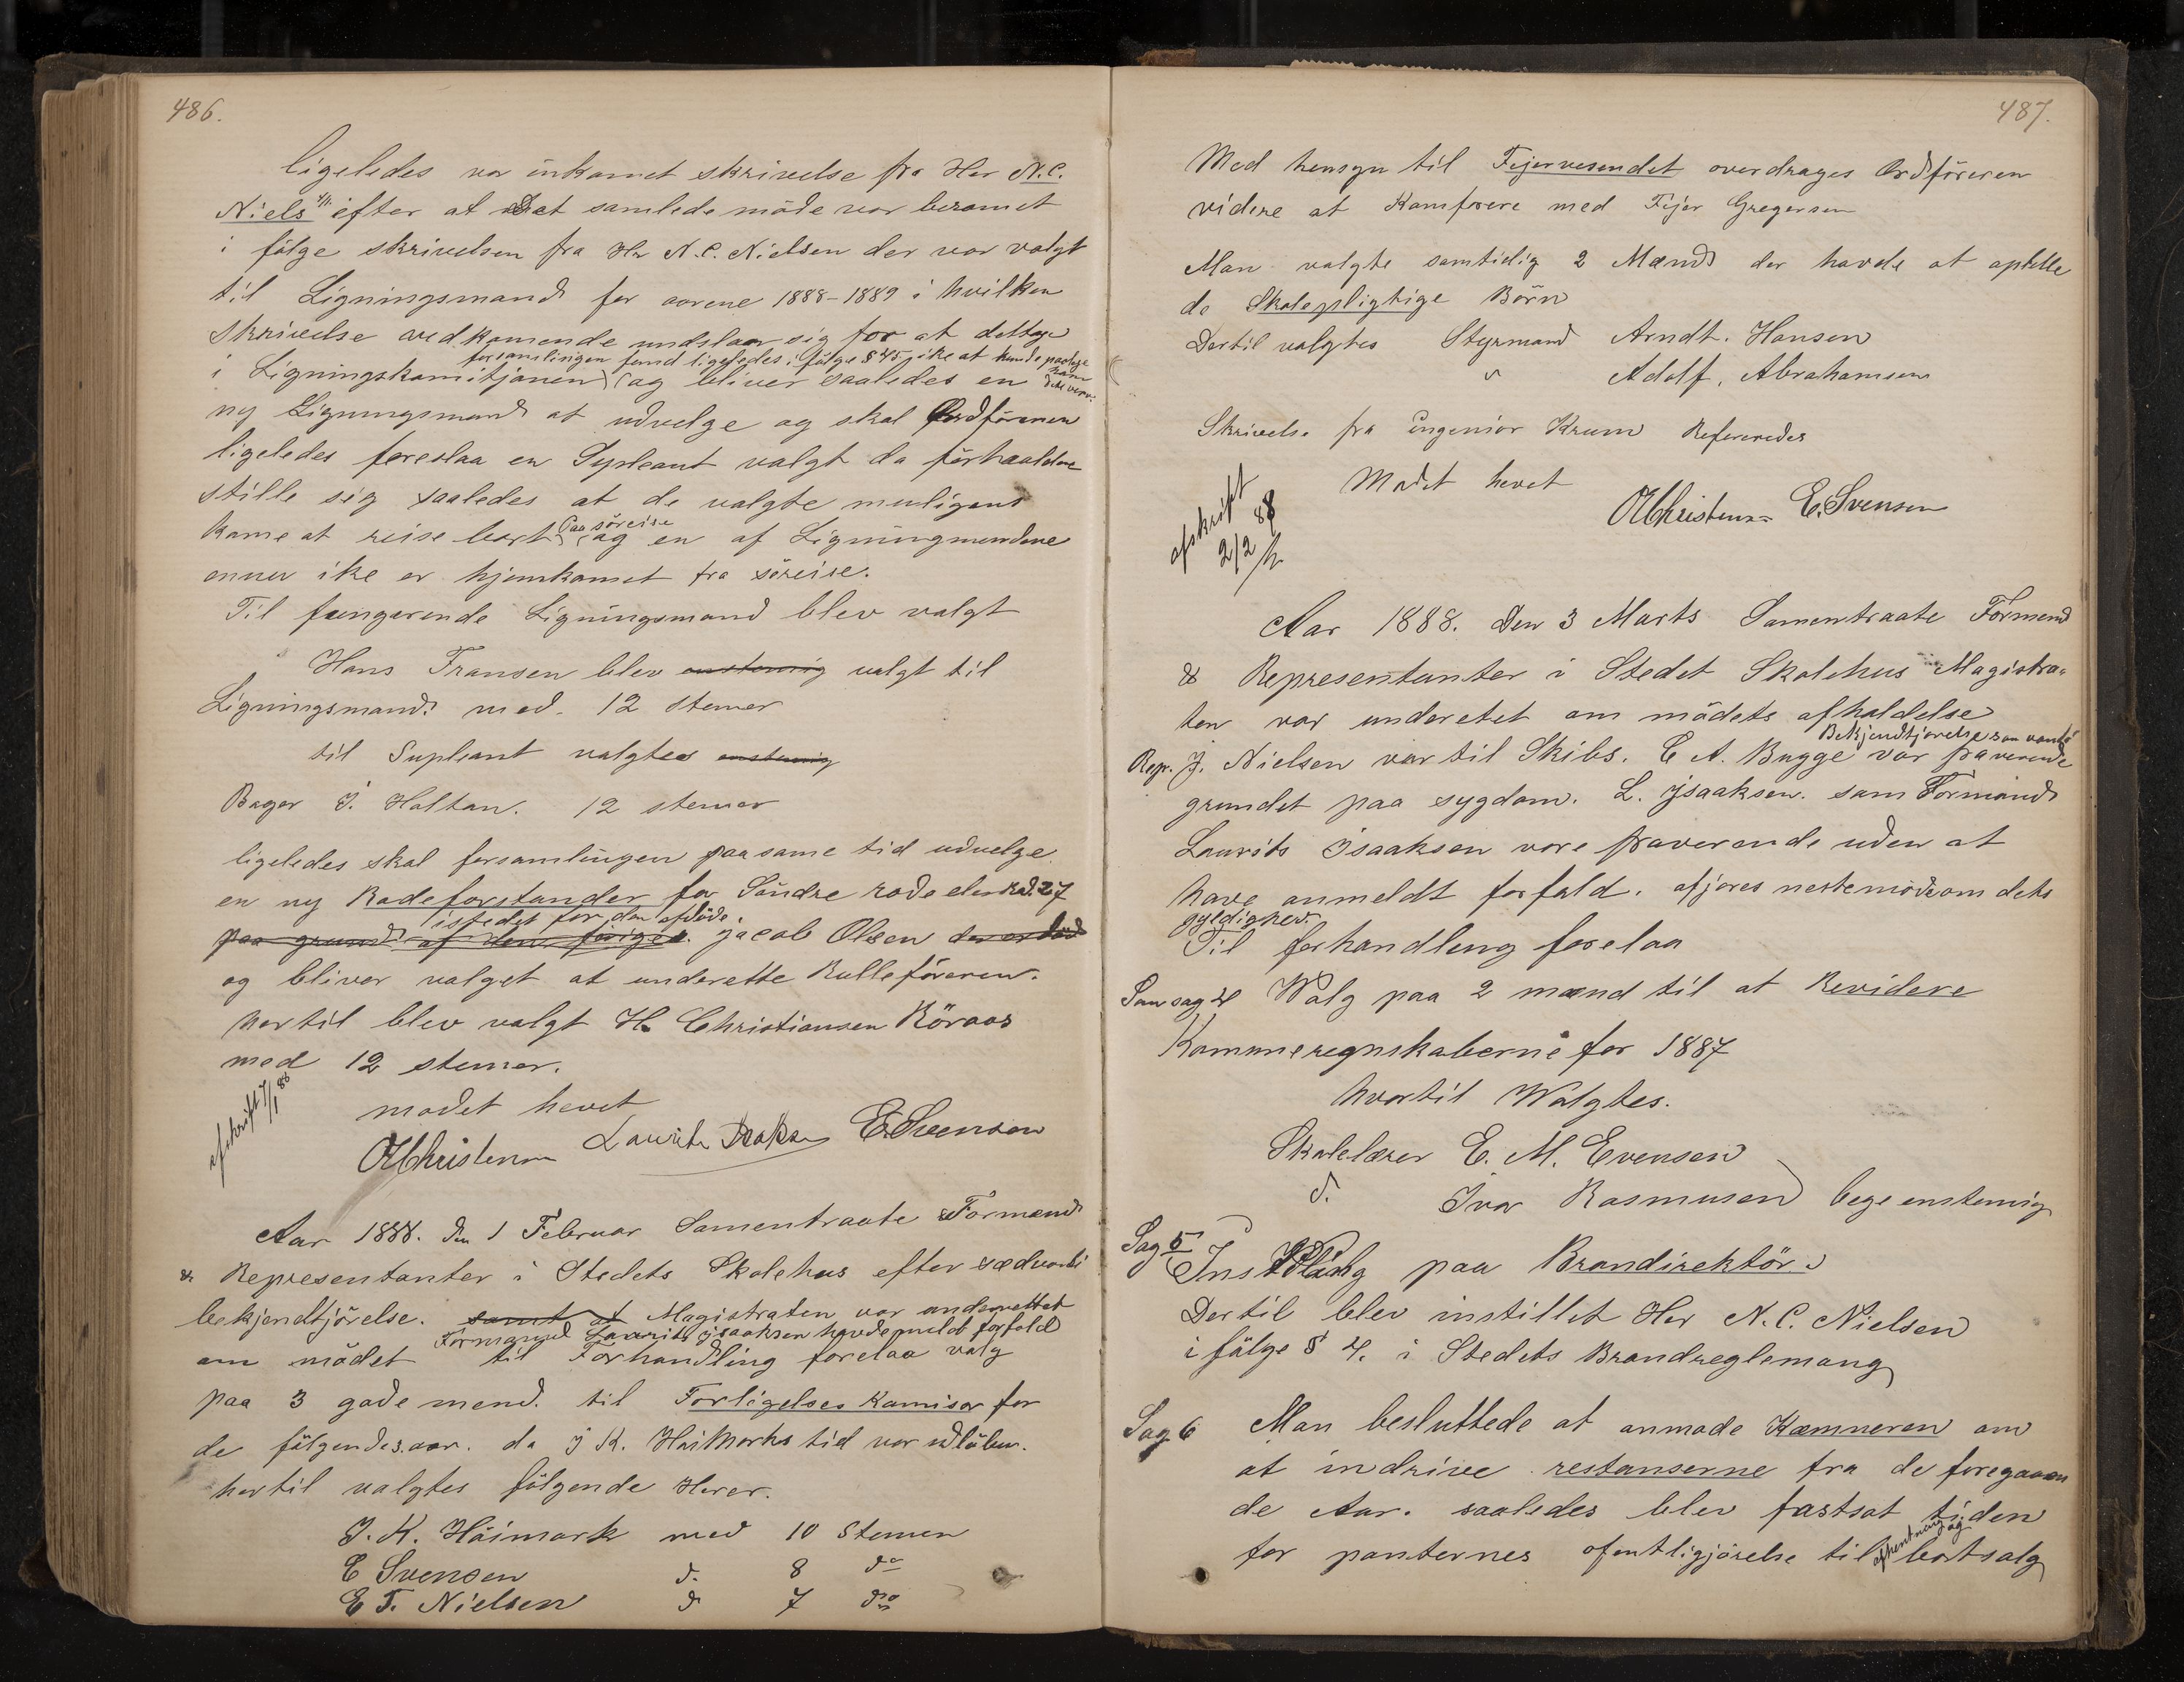 486.
ligeledes va inkomet skrivelse fra Her N.C.
Niels efter at Det samlede möde var beramet
i fölge skrivelsen fra Hr N.C. Nielsen der var valgt
til Ligningsmand for aarene 1888-1889 i hvilken
Skrivelse vedkomende undslaar sig for at deltage
forsamlingen fand ligeledes i fölge § 45 ike at kunde paalege ham dette verv.
i Ligningskomitjonen og bliver saaledes en
ny Ligningsmand at udvelge og skal Ordföreren
ligeledes foreslaa en Supleant valgt da forhaaldene
stille sig saaledes at de valgte muligens
kame at reise bort Paa söreise og en af Ligningmendene
ennu ike er hjemkomet fra söreise.
Til fungerende Ligningsmand blev valgt
Hans Fransen blev enstemig valgt til
Ligningsmand med 12 stemer
til Supleant valgtes enstemig
Bager J. Holtan. 12 stemer
ligeledes skal forsamlingen paa same tid udvelge
en ny Rodeforstander for Söndre rode eler Rode 27
istedet for den afdöde.
paa grund af den foriges Jacob Olsen der er död
og bliver valget at underette Rulleföreren.
hertil blev valgt H. Christiansen Röraas
med 12 stemer.
afskrift 7/1 88
mödet hevet
OHChristensen Laurits Isaksen E. Svensen
Aar 1888. Den 1 Februar Samentraate Formend
& Representanter i Stedets Skolehus efter sædvanli
bekjendtjörelse. samt at Magistraten var underrettet
Formand Laurits Jsaaksen havde meldt forfald
om mödet til Forhandling forelaa valg
paa 3 gode mend. til Forligelses Kamisor for
de fölgendes aar. da J K. Höimarks tid var udlöben.
hertil valgtes fölgende Herer.
J. K. Höimark med 10 Stemer
E Svensen d. 8 do
E T. Nielsen d 7 do
487.
Med hensyn til Fejervesendet overdrages Ordföreren
videre at Kamferere med Fejer Gregersen
Man valgte samtidig 2 Mænd der havde at optelle
de Skolepligtige Börn
Dertil valgtes Styrmand Arndt. Hansen
" Adolf. Abrahamsen
Skrivelse fra ingeniør Krum Refereredes
Mödet hevet
afskrift 2/2 88
OHChristensen E. Svensen
Aar 1888. Den 3 Marts Samentraate Formend
& Representanter i Stedet Skolehus Magistra-
ten var underetet om mödets afholdelse
Bekjendtjörelse som vanlig
Rep. J. Nielsen var til Skibs. C A. Bugge var fraverende
grundet paa sygdom. L. Jsaaksen. sam Formand
Laurits Jsaaksen vore fraverende uden at
have anmeldt forfald. afjöres neste möde om dets
gyldighed.
Til forhandleng forelaa
Sam sag 4 Walg paa 2 mænd til at Revidere
Kommuneregnskaberne for 1887
hvortil Walgtes.
Skolelærer E. M. Evensen
d. Ivar Rasmusen bege enstemig
Sag 5 Instilling paa Brandirektör.
Dertil blev instillet Her N. C. Nielsen
i fölge § 4. i Stedets Brandreglemang
Sag 6 Man besluttede at anmode Kæmneren om
at indrive restanserne fra de foregaaen
de Aar. saaledes blev fastsat tiden
for panternes ofentligjörelse til afhentning og bortsalg